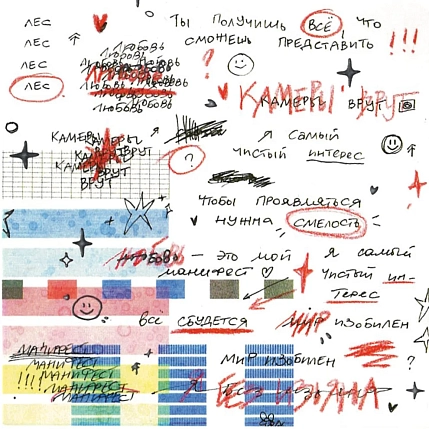 лес
лес
лес
лес
Любовь
Любовь
Любовь Любовь
Любовь
Любовь Любовь
Любовь
Ты получишь всё, что
сможешь представить !!!
?
КАМЕРЫ ВРУТ
КАМЕРЫ ВРУТ
КАМЕРЫ
КАМЕРЫ
КАМЕРЫ ВРУТ
КАМЕРЫ
ВРУТ
ВРУТ
?
Я самый
чистый интерес
Чтобы проявляться
нужна смелость
любовь — это мой
манифест
Я самый
чистый ин-
терес
всё сбудется
мир изобилен
мир изобилен
?
манифест
манифест
!!!! манифест
манифест
манифест
Я без изъяна